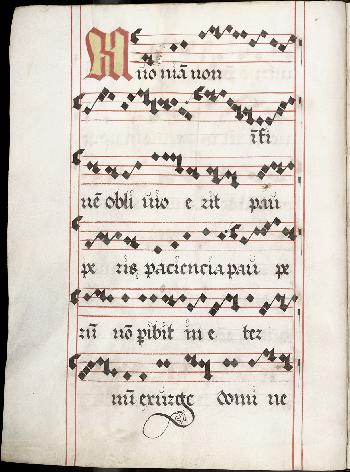 Quo niā non
ī fi
nē obli uio e rit pau
pe ris paciencia pau pe
rū nō ꝑibit in e ter
nū exurge domi ne